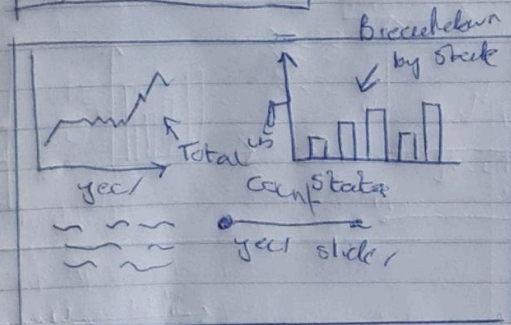 Breakdown
by State
Total
year
Count
State
year slider